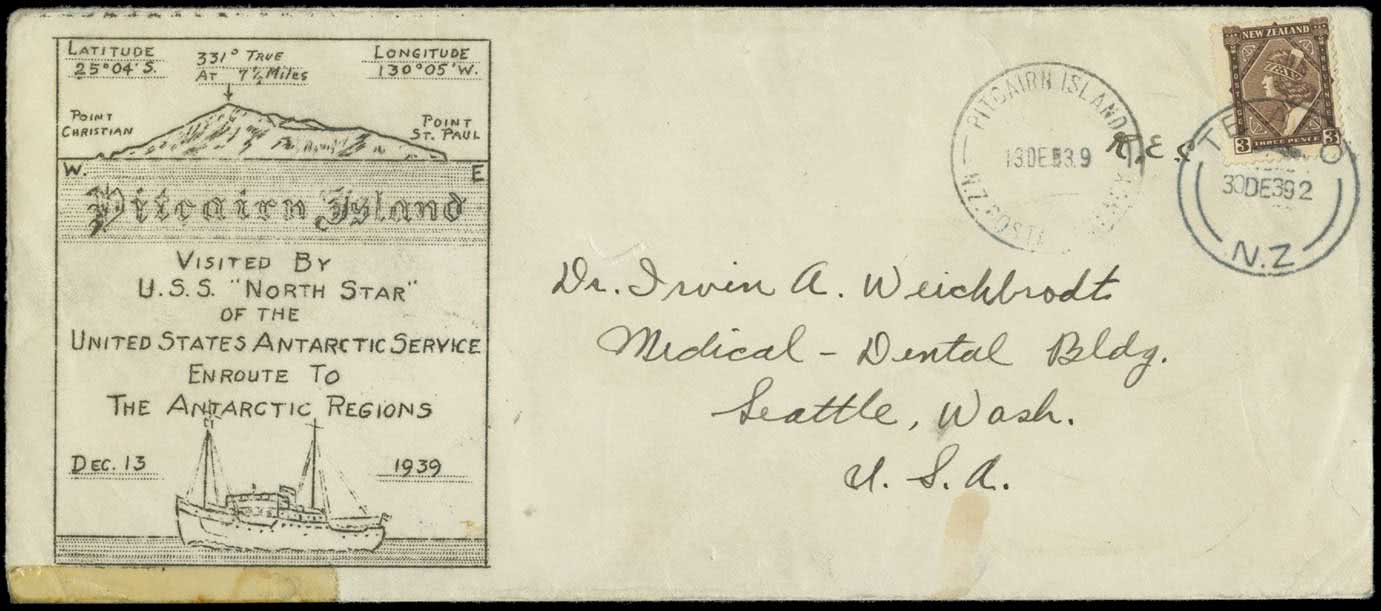 LATITUDE
25°04'S.
331° TRUE
AT 7½ MILES
LONGITUDE
130°05'W.
POINT
CHRISTIAN
POINT
ST. PAUL
W. E
Pitcairn Island
VISITED BY
U.S.S. "NORTH STAR"
OF THE
UNITED STATES ANTARCTIC SERVICE
ENROUTE TO
THE ANTARCTIC REGIONS
DEC. 13 1939
PITCAIRN ISLAND
13DE 39
NEW ZEALAND
POSTAGE
3 THREE PENCE 3
30DE39 2
N.Z
Dr. Irvin A. Weichbrodt
Medical - Dental Bldg.
Seattle, Wash.
U. S. A.